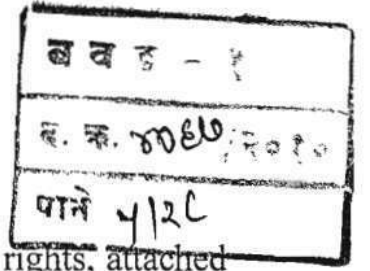 ब व ड - १
द. क्र. ४०६७/२०१०
पाने ५/२८
rights, attached